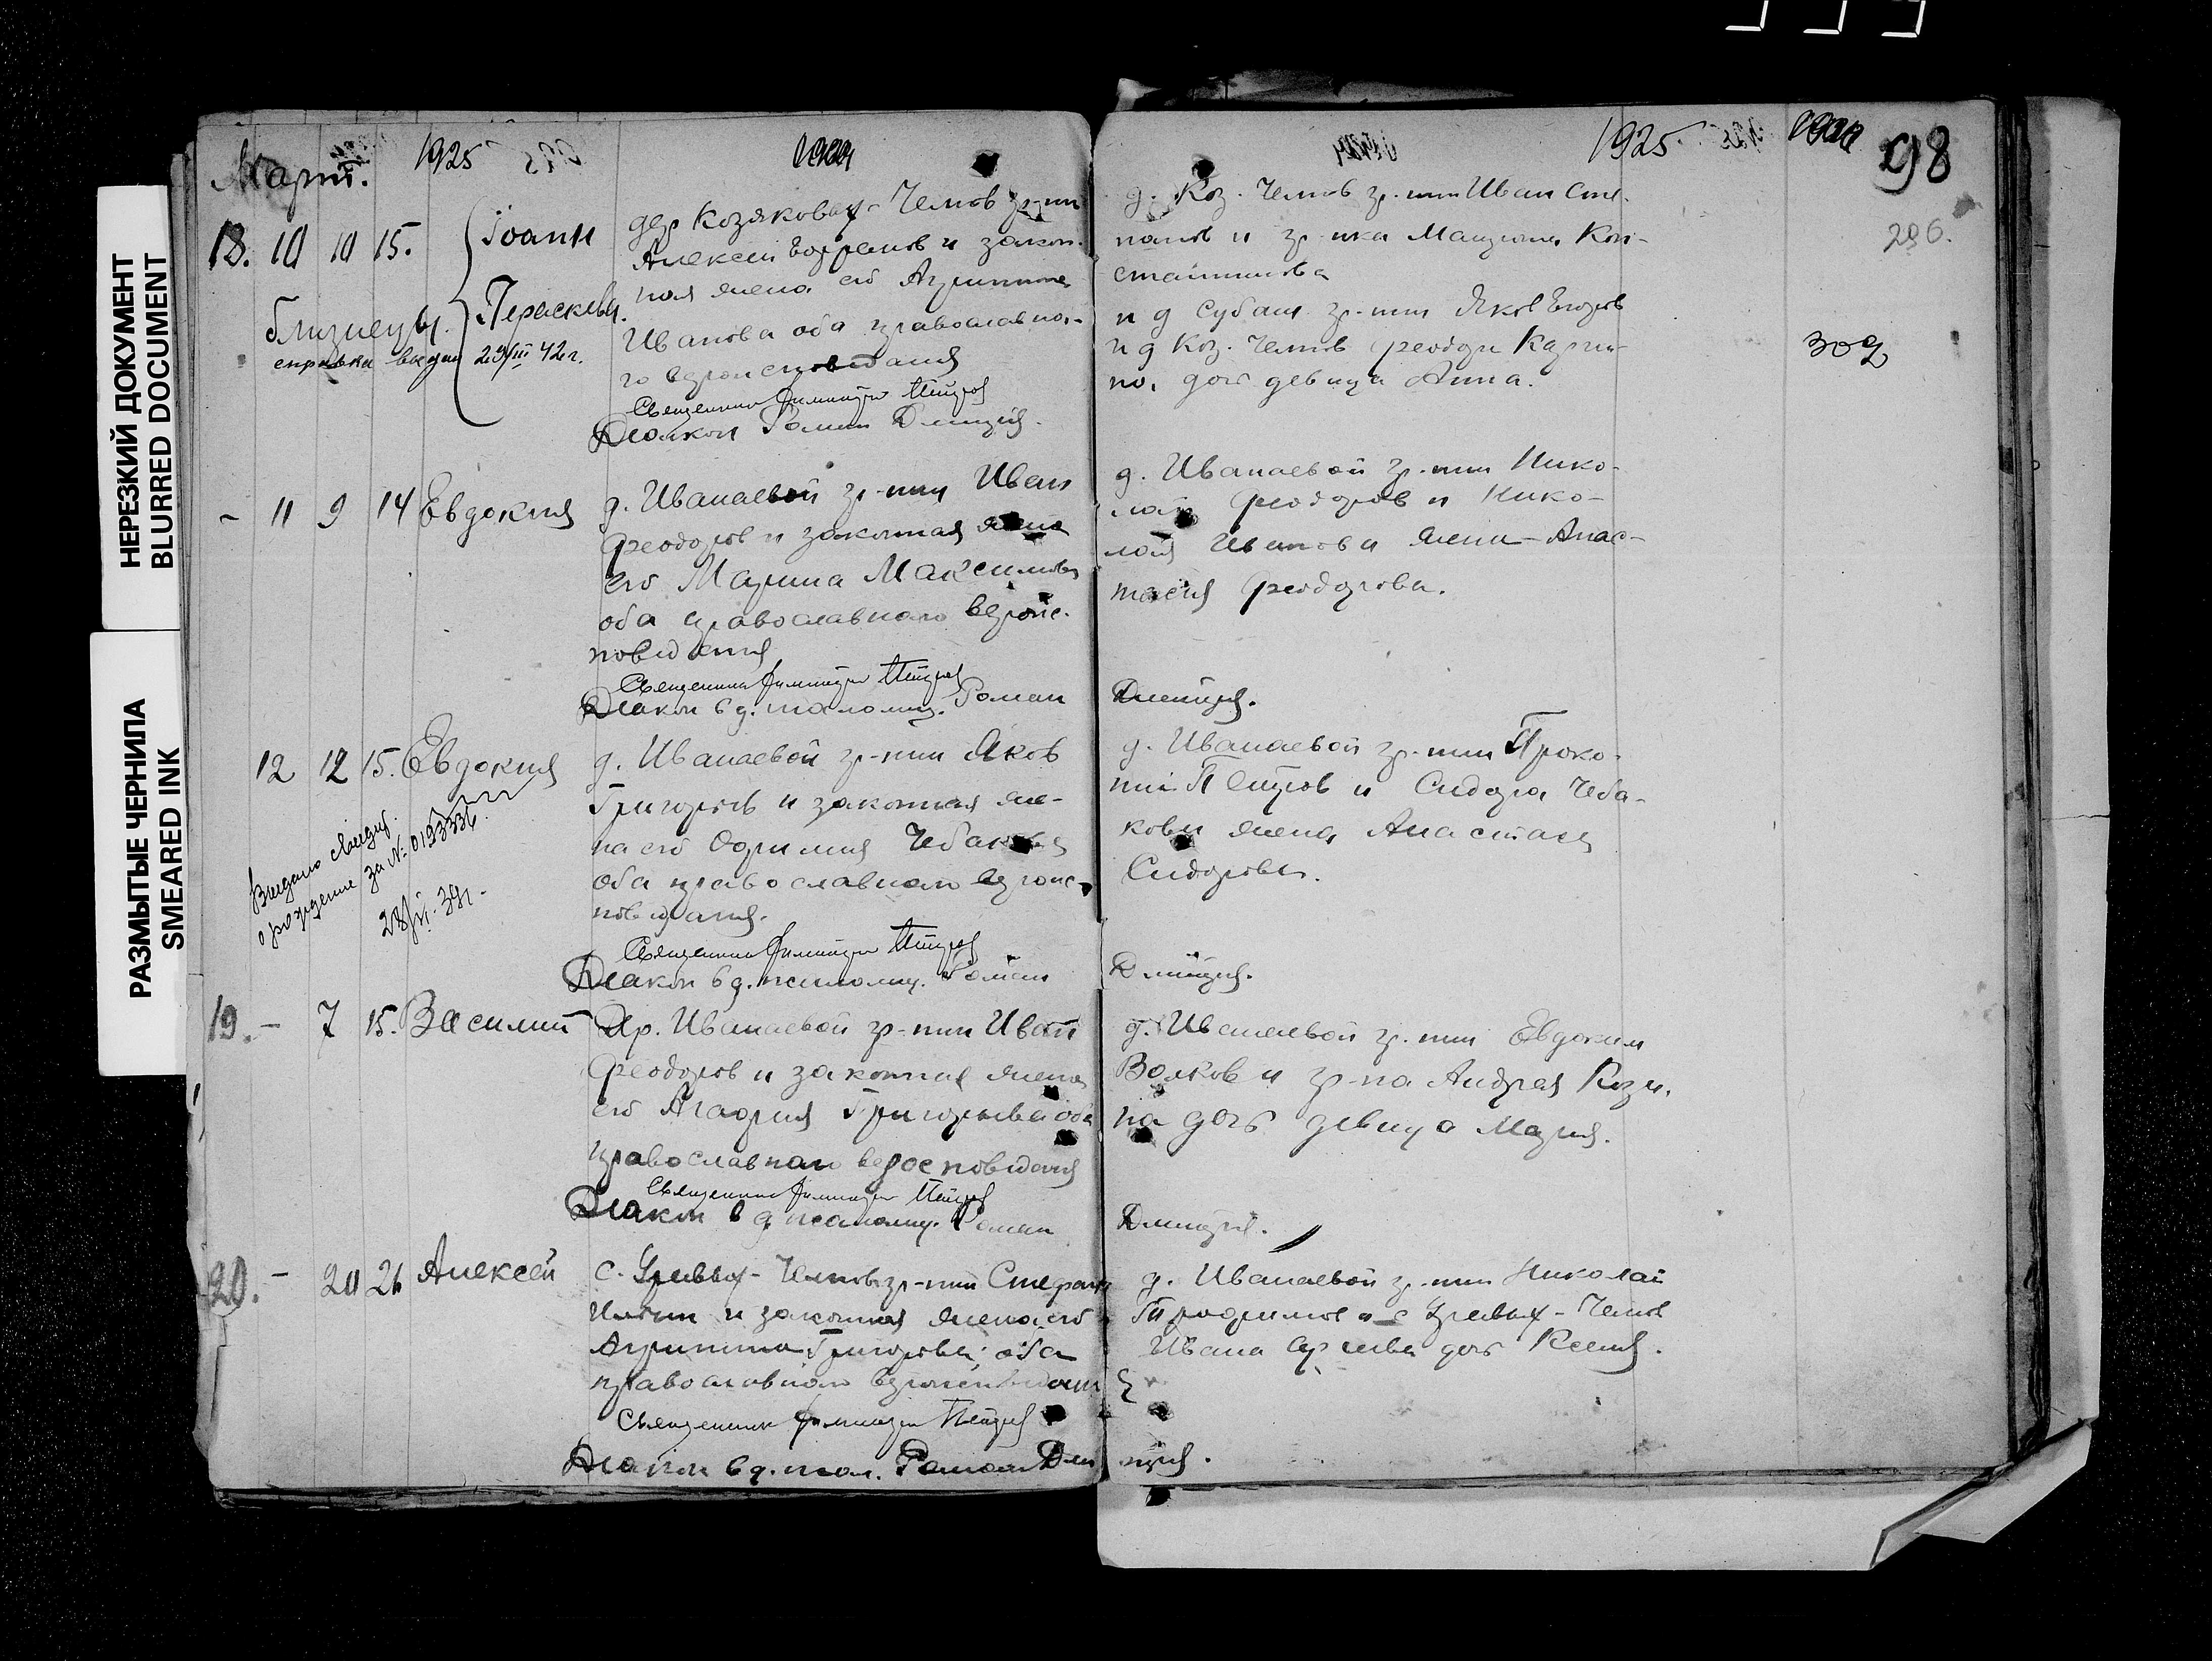 НЕРЕЗКИЙ ДОКУМЕНТ
BLURRED DOCUMENT
РАЗМЫТЫЕ ЧЕРНИЛА
SMEARED INK
Март. 1925
18. 10 10 15. Іоанн
Параскева.
близнецы.
справка выдан 29/III 42 г.
дер Козяковых-Челнов гр-нин
Алексей и закон-
ная жена его Агриппина
Иванова оба православно-
го вероисповедания
Священник Димитрий Петров
Диакон Роман Дмитриев.
- 11 9 14 Евдокия
д. Иванаевой гр-нин Иван
Феодоров и законная жена
его Марина Максимова
оба православного вероис-
поведания
Священник Димитрий Петров
Диакон в д. псаломщ. Роман
12 12 15. Евдокия
Выдано свидет.
о рождение за № 0193336.
д. Иванаевой гр-нин Яков
Григорьев и законная же-
на его Чебакова
оба православного вероис-
поведания.
Священник Димитрий Петров
Диакон в д. псаломщ. Роман
19. - 7 15. Василий
Др. Иванаевой гр-нин Иван
Феодоров и законная жена
его Агафия Григорьева оба
православного вероисповедания
Священник Димитрий Петров
Диакон в д псаломщ. Роман
20. - 20 21 Алексей
с. -Челнов гр-нин Стефан
Ильин и законная жена его
Агрипина Григорьева; оба
православного вероисповедан
Священник Димитрий Петров
Диакон в д. псал. Роман Дми
1925. 98
296.
д. Коз. Челнов гр-нин Иван Сте-
панов и гр-нка Кон-
стантинова
и д Субаш гр-нин Яков Егоров
и д Коз. Челнов Феодор
на, дочь девица Анна.
д. Иванаевой гр-нин Нико-
лай Феодоров и Нико-
лая Иванова жена-Анас-
тасия Феодорова.
Дмитриев.
д. Иванаевой гр-нин Проко-
пий Петров и Сидора Чеба-
кова жена Анастасия
Сидорова.
Дмитриев.
д. Иванаевой гр-нин Евдоким
Волков и гр-на Андрея Кузи-
на дочь девица Мария.
Дмитриев.
д. Иванаевой гр-нин Николай
Трофимов и с -Челнов
Ивана дочь Ксения.
триев.